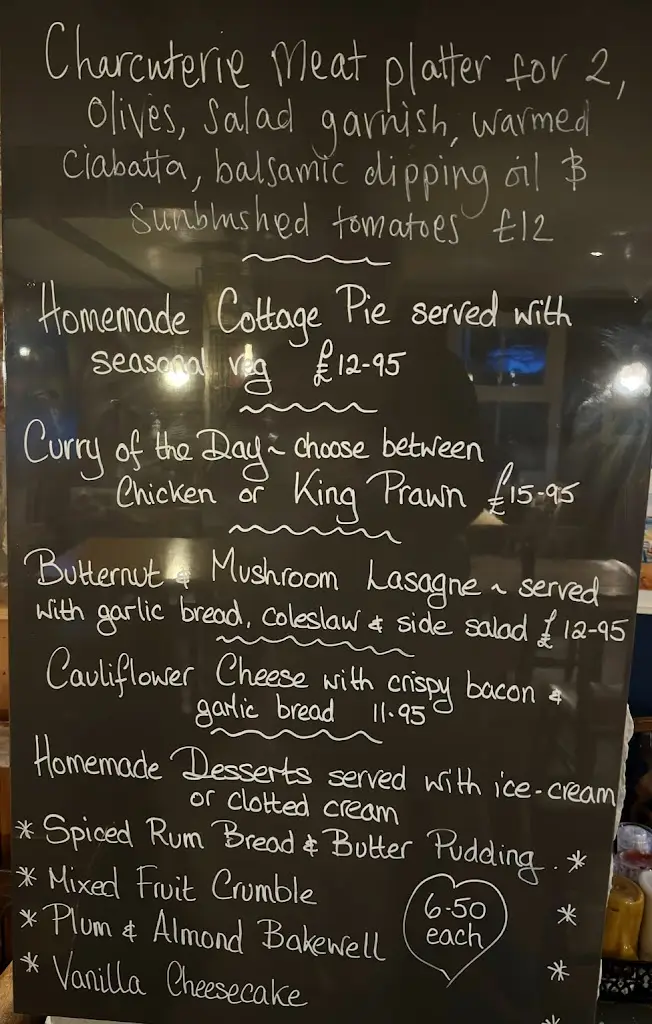 Charcuterie Meat platter for 2,
Olives, Salad garnish, warmed
Ciabatta, balsamic dipping oil &
Sunblushed tomatoes £12
Homemade Cottage Pie served with
seasonal veg £12-95
Curry of the Day ~ choose between
Chicken or King Prawn £15-95
Butternut & Mushroom Lasagne ~ served
with garlic bread, coleslaw & side salad £12-95
Cauliflower Cheese with crispy bacon &
garlic bread 11.95
Homemade Desserts served with ice-cream
or clotted cream
* Spiced Rum Bread & Butter Pudding. *
* Mixed Fruit Crumble
* Plum & Almond Bakewell
* Vanilla Cheesecake
6-50
each